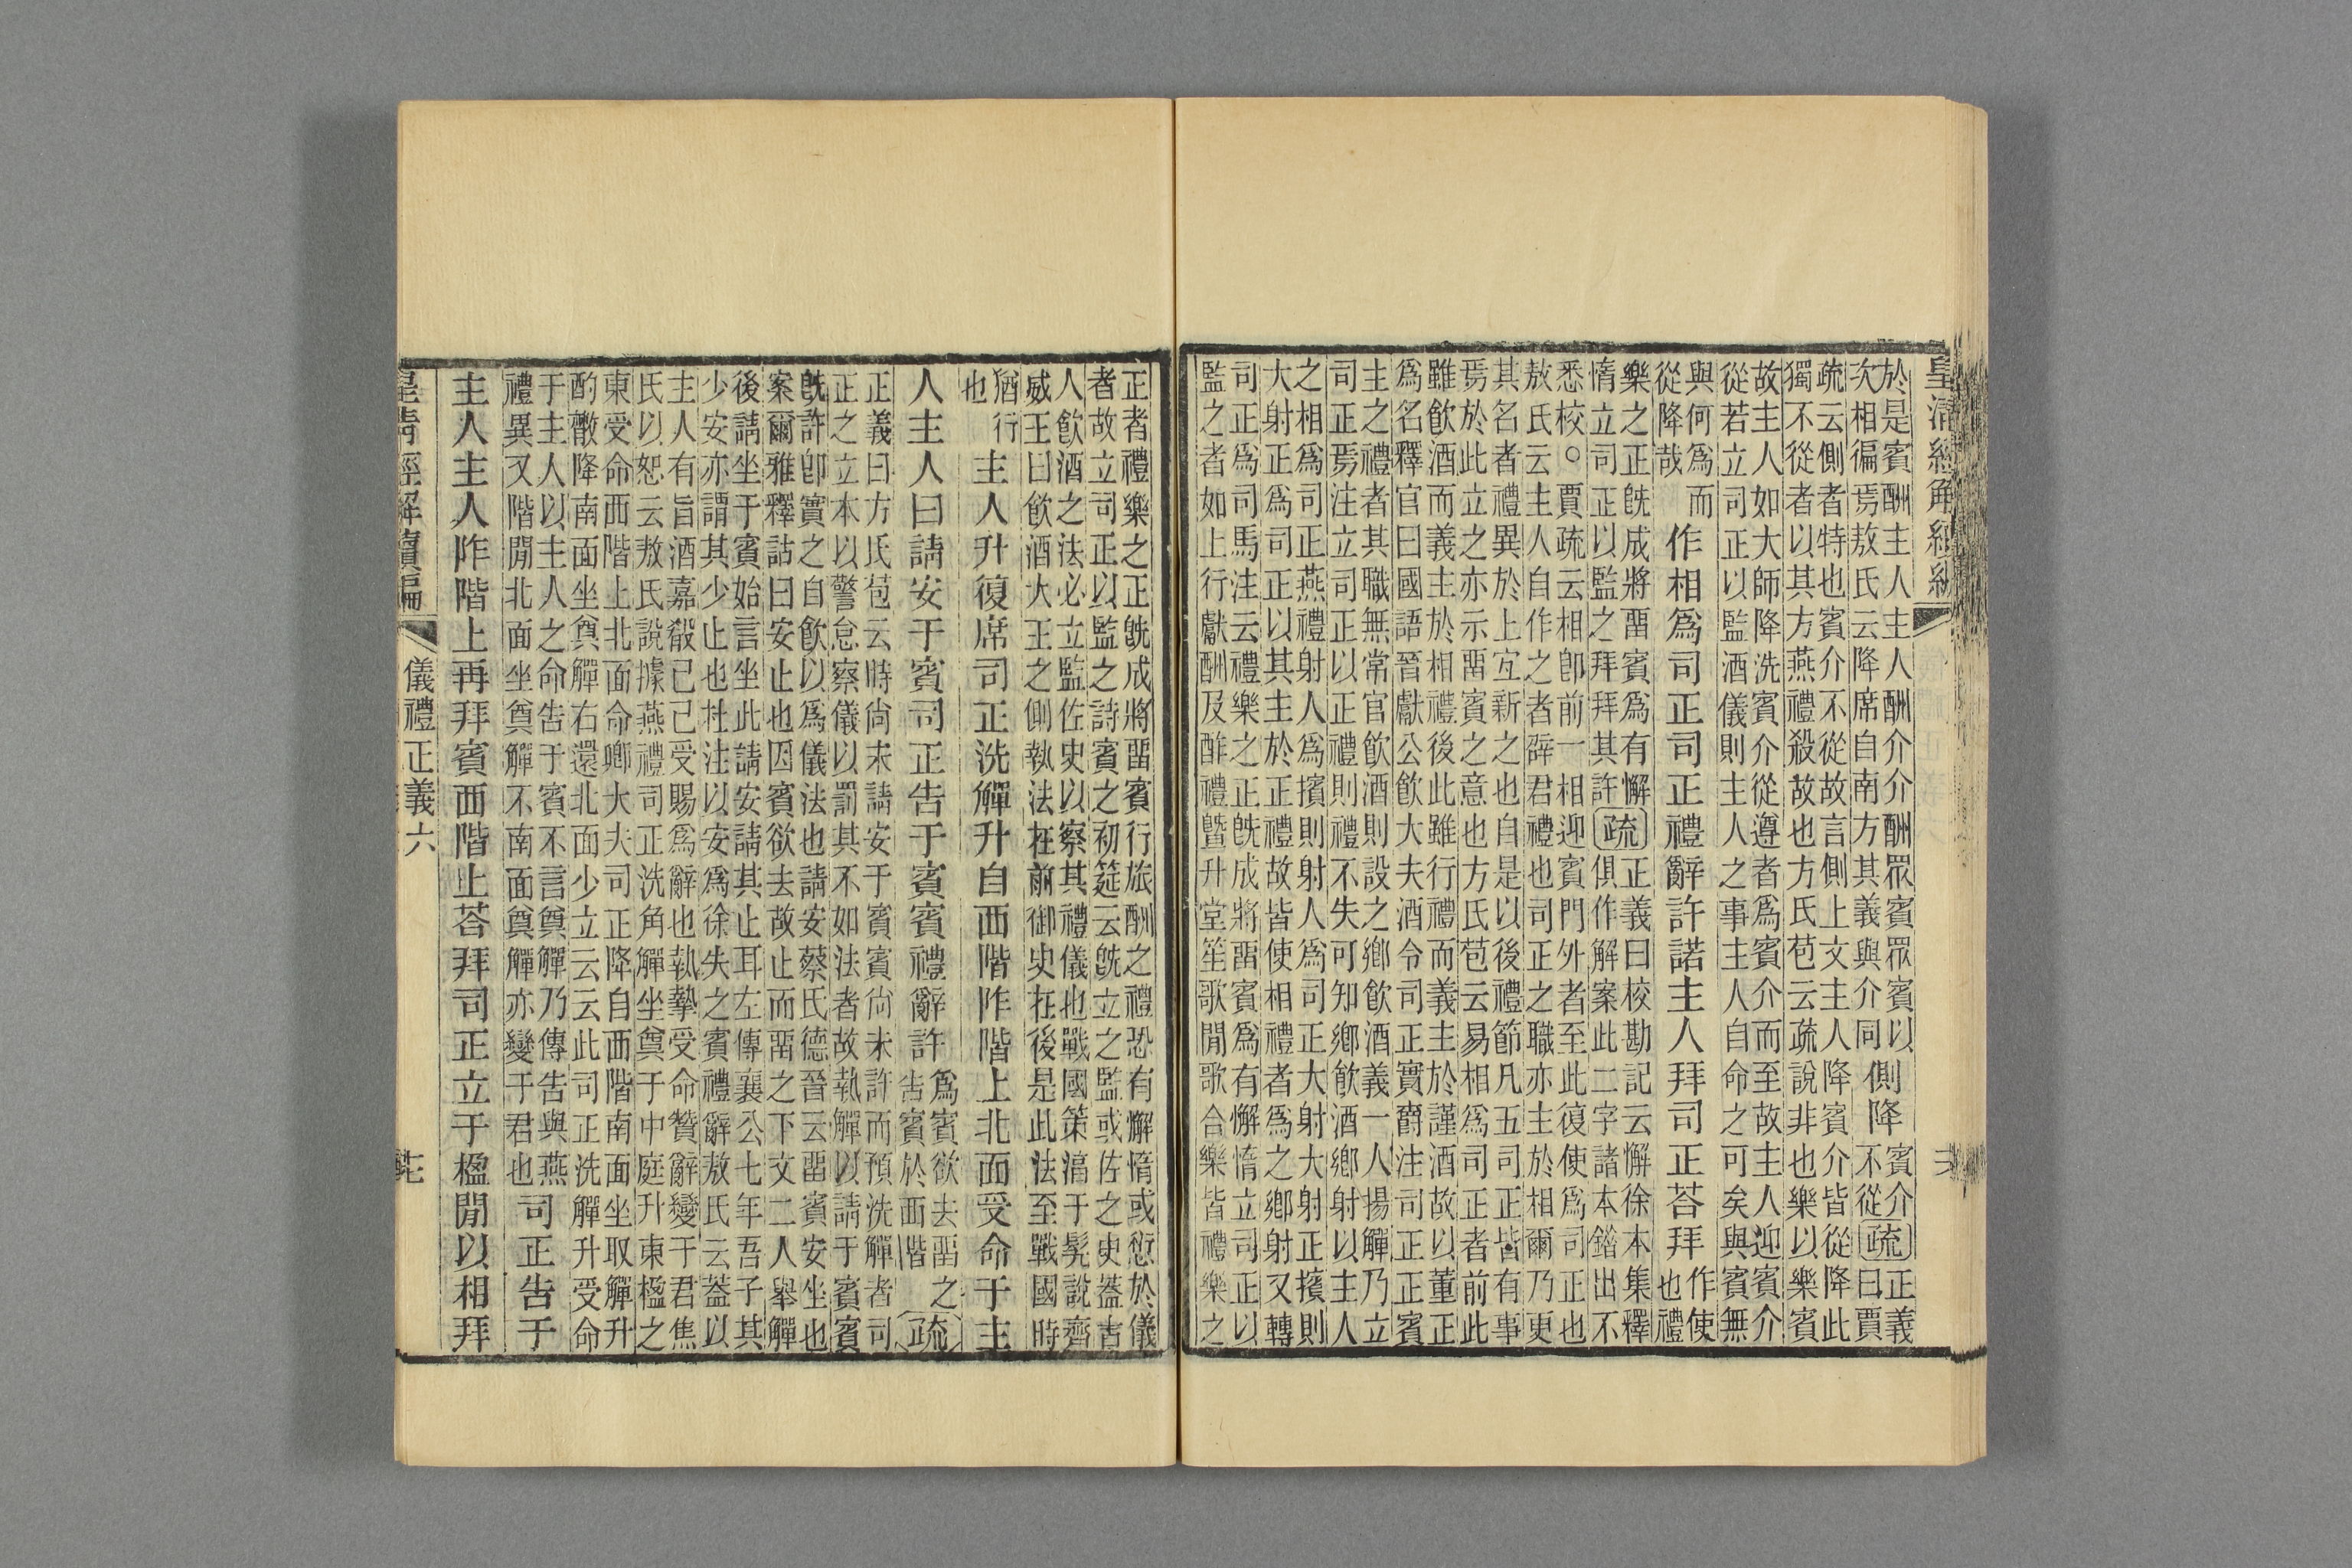 皇清經解續編
於是賓酬主人主人酬介介酬眾賓眾賓以
次相徧焉敖氏云降席自南方其義與介同
側降
賓介
不從
疏
正義
曰賈
疏云側者特也賓介不從故言側上文主人降賓介皆從降此
獨不從者以其方燕禮殺故也方氏苞云疏說非也樂以樂賓
故主人如大師降洗賓介從遵者為賓介而至故主人迎賓介
從若立司正以監酒儀則主人之事主人自命之可矣與賓無
與何為而
從降哉
作相為司正司正禮辭許諾主人拜司正荅拜
作使
也禮
樂之正旣成將畱賓為有懈
惰立司正以監之拜拜其許
疏
正義曰校勘記云懈徐本集釋
俱作解案此二字諸本錯出不
悉校○賈疏云相卽前一相迎賓門外者至此復使為司正也
敖氏云主人自作之者辟君禮也司正之職亦主於相爾乃更
其名者禮異於上宜新之也自是以後禮節凡五司正皆有事
焉於此立之亦示畱賓之意也方氏苞云易相為司正者前此
雖飮酒而義主於相禮後此雖行禮而義主於謹酒故以董正
為名釋官曰國語晉獻公飮大夫酒令司正實爵注司正正賓
主之禮者其職無常官飮酒則設之鄉飮酒義一人揚觶乃立
司正焉注立司正以正禮則禮不失可知鄉飮酒鄉射以主人
之相為司正燕禮射人為擯則射人為司正大射大射正擯則
大射正為司正以其主於正禮故皆使相禮者為之鄉射又轉
司正為司馬注云禮樂之正旣成將畱賓為有懈惰立司正以
監之者如上行獻酬及酢禮曁升堂笙歌閒歌合樂皆禮樂之
正者禮樂之正旣成將畱賓行旅酬之禮恐有懈惰或愆於儀
者故立司正以監之詩賓之初筵云旣立之監或佐之史蓋古
人飮酒之法必立監佐史以察其禮儀也戰國策淳于髡說齊
威王曰飮酒大王之側執法在前御史在後是此法至戰國時
猶行
也
主人升復席司正洗觶升自西階阼階上北面受命于主
人主人曰請安于賓司正告于賓賓禮辭許
為賓欲去畱之
告賓於西階
疏
正義曰方氏苞云時尙未請安于賓賓尙未許而預洗觶者司
正之立本以警怠察儀以罰其不如法者故執觶以請于賓賓
旣許卽實之自飮以為儀法也請安蔡氏德晉云畱賓安坐也
案爾雅釋詁曰安止也因賓欲去故止而畱之下文二人舉觶
後請坐于賓始言坐此請安請其止耳左傳襄公七年吾子其
少安亦謂其少止也杜注以安為徐失之賓禮辭敖氏云蓋以
主人有旨酒嘉殽已已受賜為辭也執摯受命贊辭變于君焦
氏以恕云敖氏說據燕禮司正洗角觶坐奠于中庭升東楹之
東受命西階上北面命卿大夫司正降自西階南面坐取觶升
酌散降南面坐奠觶右還北面少立云云此司正洗觶升受命
于主人以主人之命告于賓不言奠觶乃傳告與燕
禮異又階閒北面坐奠觶不南面奠觶亦變于君也
司正告于
主人主人阼階上再拜賓西階上荅拜司正立于楹閒以相拜
皇淸經解續編
儀禮正義六